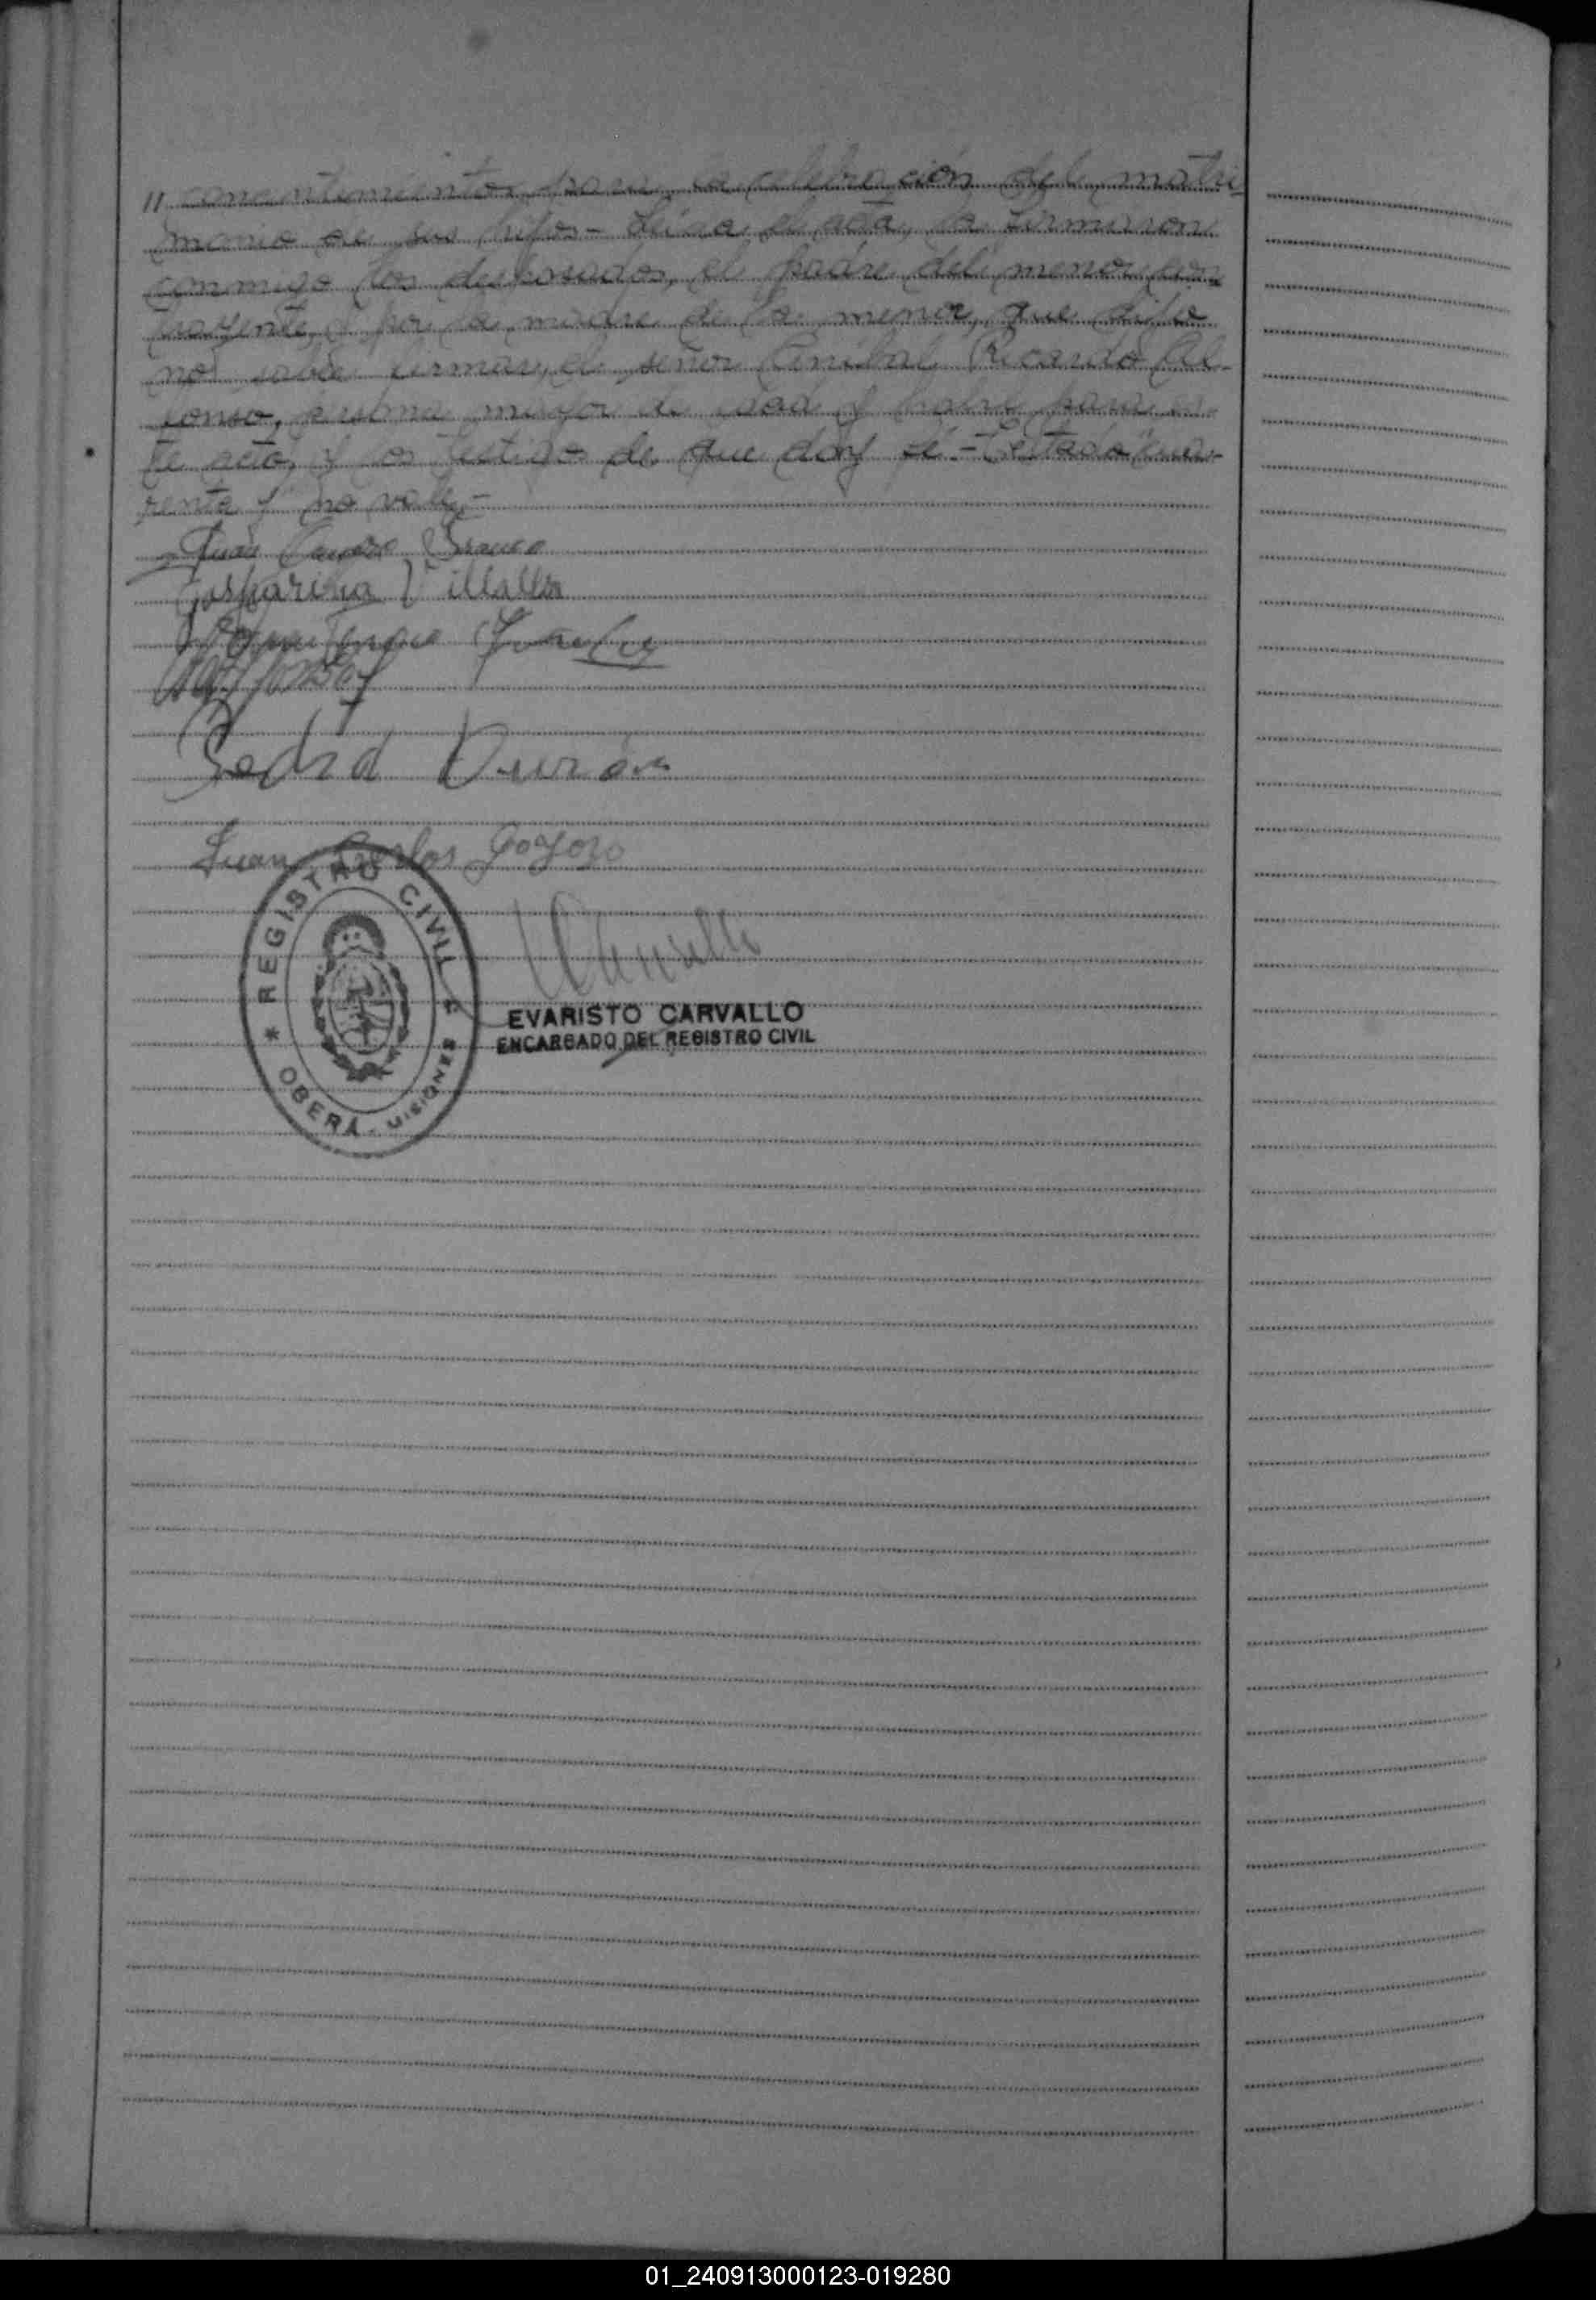 // consentimiento para la celebración del matri-
monio de sus hijos.- Leída el acta, la firmaron
conmigo los desposados, el padre del menor con-
trayente, y por la madre de la menor, que dijo
no saber firmar, el señor Anibal Ricardo Al-
fonso, persona mayor de edad y hábil para es-
te acto, y los testigos de que doy fé.- Testado: "cua-
renta y" no vale.-
Juan
Gasparina Villalba
Pedro Durán
Juan Carlos Gogozo
REGISTRO CIVIL
OBERÁ - MISIONES
EVARISTO CARVALLO
ENCARGADO DEL REGISTRO CIVIL
01_240913000123-019280